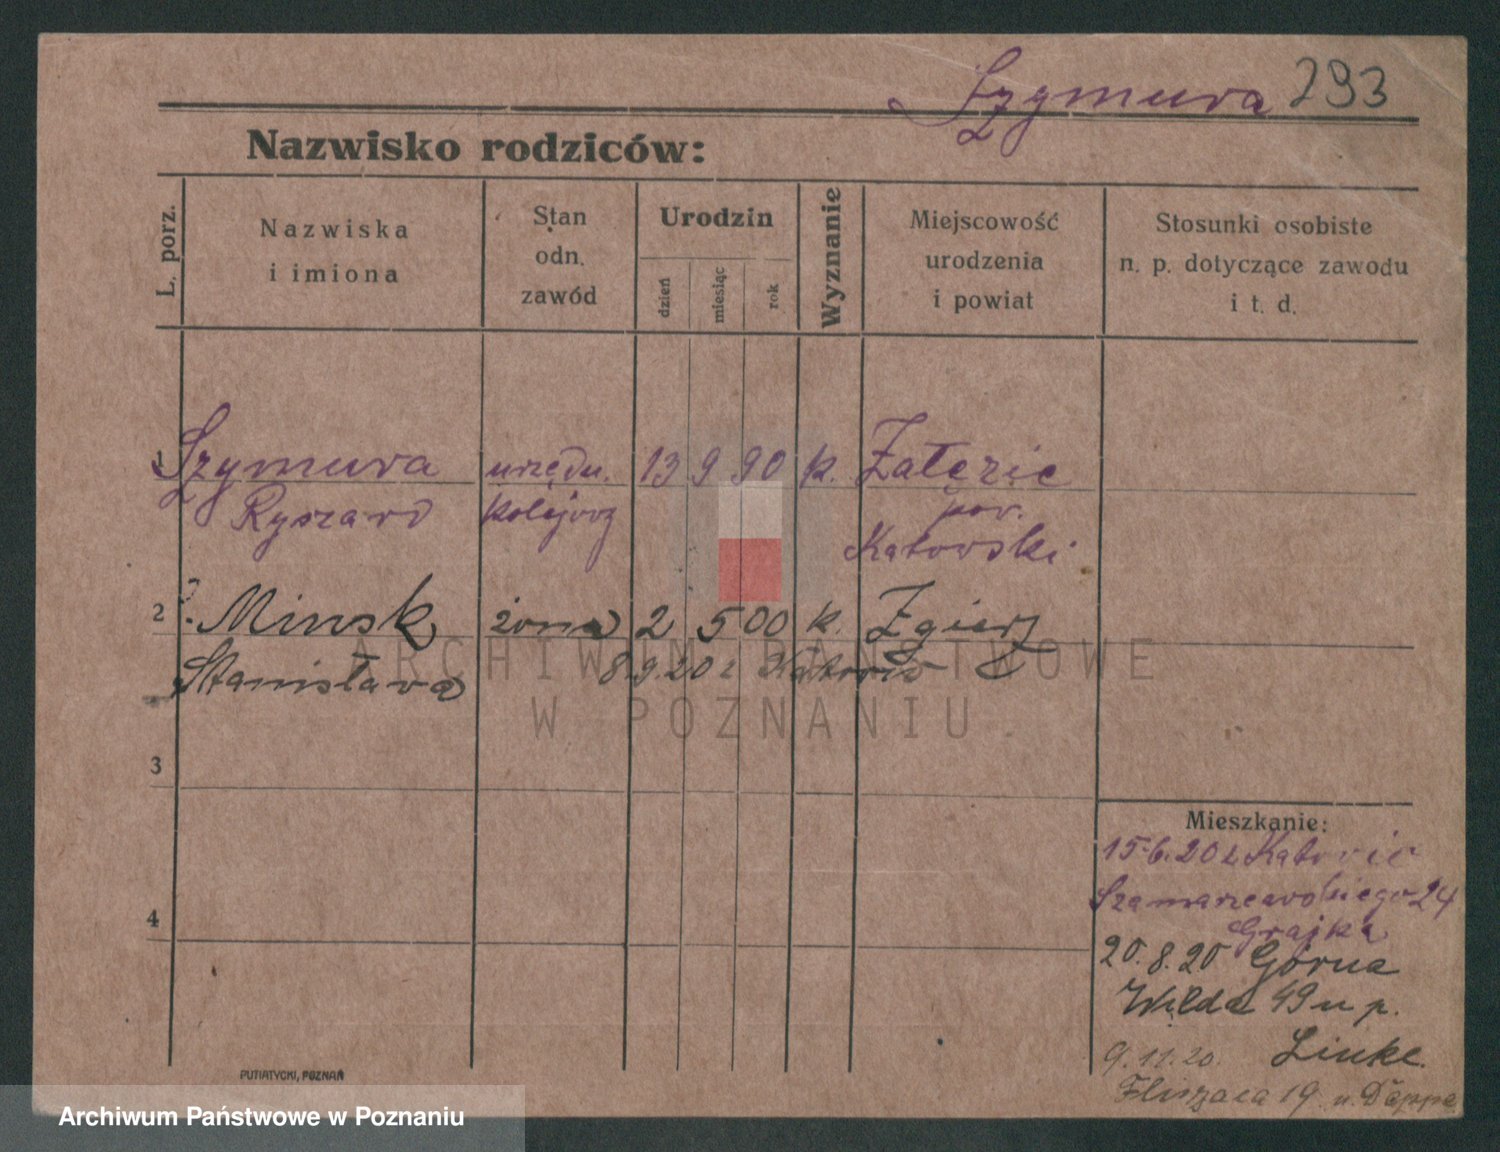 Szymura 293
Nazwisko rodziców:
L. porz.
Nazwiska
i imiona
Stan
odn.
zawód
Urodzin
dzień
miesiąc
rok
Wyznanie
Miejscowość
urodzenia
i powiat
Stosunki osobiste
n. p. dotyczące zawodu
i t. d.
1 Szymura urzędn. 13 9 90 k. Załęzie
Ryszard kolejowy pow.
Katowski
2 Minsk żona 2 5 00 k. Zgierz
Stanisława 8.9.20 z Katowic
3
4
Mieszkanie:
15.6.20 z Katowic
Szamarzewskiego 24
Grajka
20.8.20 Górna
Wilda 49 u p.
Linke.
9.11.20.
19 u.
PUTIATYCKI, POZNAŃ
ARCHIWUM PAŃSTWOWE
W POZNANIU
Archiwum Państwowe w Poznaniu